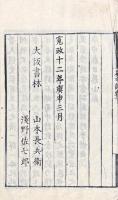 寛政十二年庚申三月
大阪書林
山本長兵衛
淺野佐七郎